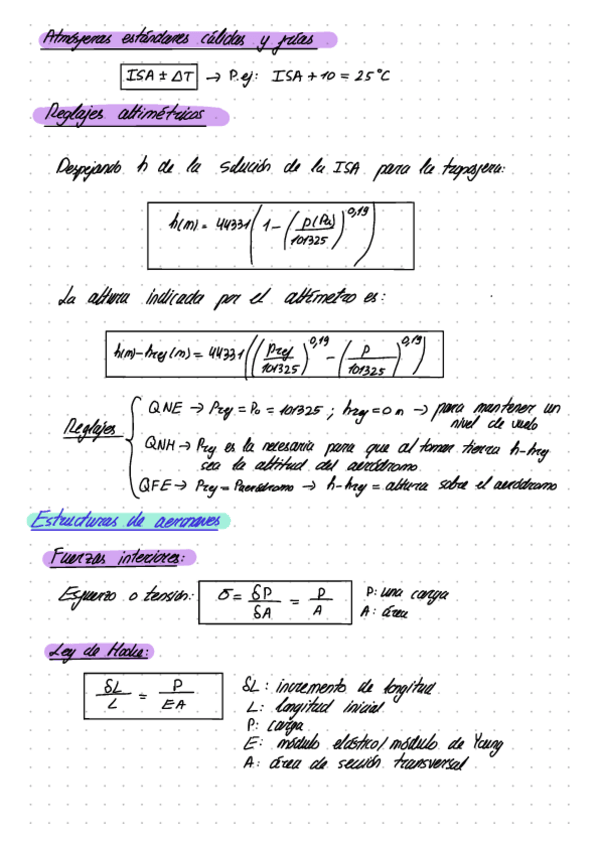 Atmósferas estándares cálidas y frías
ISA ± ΔT → P.ej: ISA + 10 = 25°C
Reglajes altimétricos
Despejando h de la solución de la ISA para la troposfera:
h(m) = 44331 (1 - (p(Pa)/101325)^0,19)
La altura indicada por el altímetro es:
h(m) - href(m) = 44331 ((Pref/101325)^0,19 - (p/101325)^0,19)
Reglajes
QNE → Pref = P0 = 101325 ; href = 0 m → para mantener un
nivel de vuelo
QNH → Pref es la necesaria para que al tomar tierra h-href
sea la altitud del aeródromo
QFE → Pref = Paeródromo → h-href = altura sobre el aeródromo
Estructuras de aeronaves
Fuerzas interiores:
Esfuerzo o tensión: σ = δP/δA = P/A
P: una carga
A: área
Ley de Hooke:
δL/L = P/EA
δL: incremento de longitud
L: longitud inicial
P: carga
E: módulo elástico/módulo de Young
A: área de sección transversal